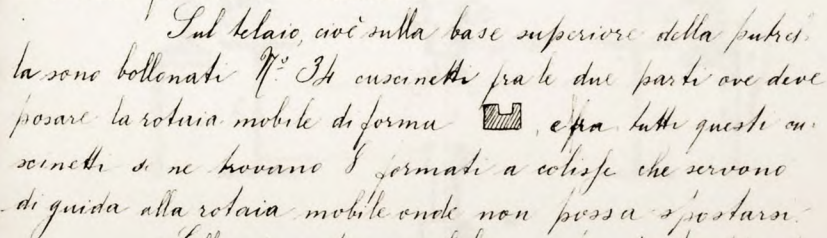 Sul telaio, cioè sulla base superiore della putrel-
la sono bollonati N.° 34 cuscinetti fra le due parti ove deve
posare la rotaia mobile di forma , e fra tutti questi cu-
scinetti se ne trovano 8 formati a colisse che servono
di guida alla rotaia mobile onde non possa spostarsi.